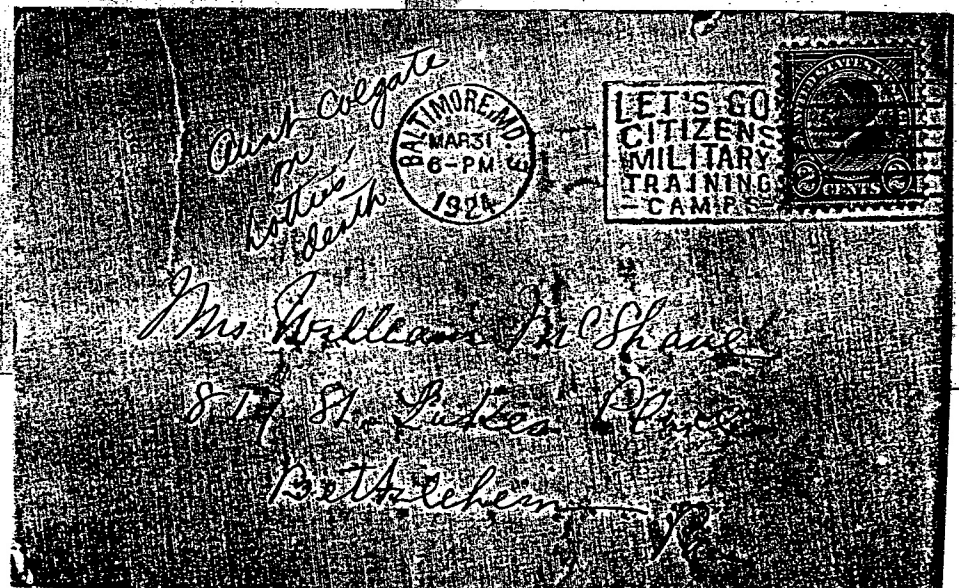 Aunt Colgate
on
Lottie's
death
BALTIMORE, MD.
MAR 31
6-PM
1924
LET'S GO
CITIZENS
MILITARY
TRAINING
CAMPS
UNITED STATES
2 CENTS 2
Mrs. William McShane
819 St. Lukes Place
Bethlehem
Pa.